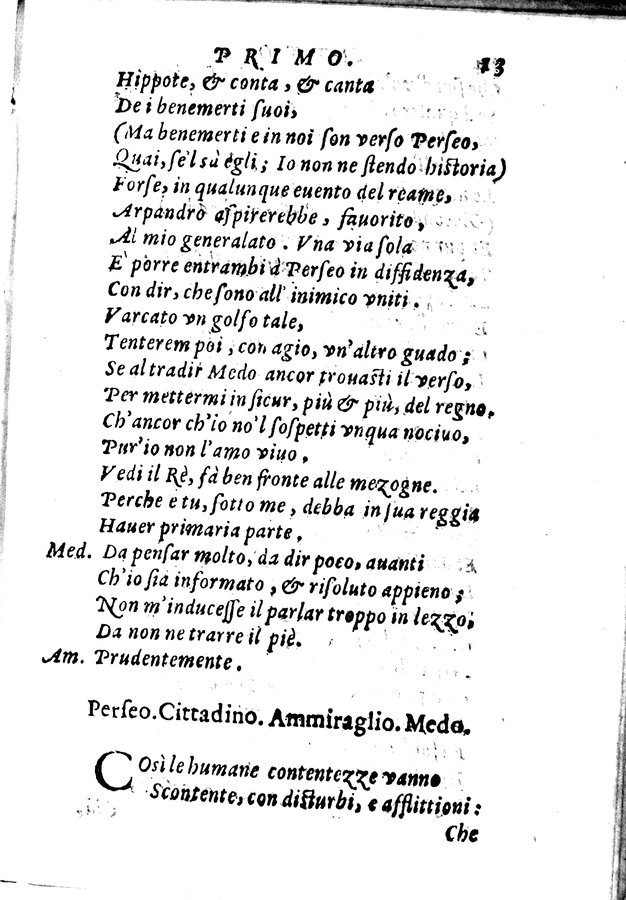 PRIMO. 23
Hippote, & conta, & canta
De i benemerti ſuoi,
(Ma benemerti e in noi ſon verſo Perſeo,
Quai, ſe'l sà egli; Io non ne ſtendo hiſtoria)
Forſe, in qualunque euento del reame,
Arpandro aſpirerebbe, fauorito,
Al mio generalato. Vna via ſola
E' porre entrambi à Perſeo in diffidenza,
Con dir, che ſono all' inimico vniti.
Varcato vn golfo tale,
Tenterem poi, con agio, vn'altro guado;
Se al tradir Medo ancor trouaſti il verſo,
Per mettermi in ſicur, più & più, del regno,
Ch'ancor ch'io no'l ſoſpetti vnqua nociuo,
Pur'io non l'amo viuo.
Vedi il Rè, fà ben fronte alle mezogne.
Perche e tu, ſotto me, debba in ſua reggia
Hauer primaria parte.
Med. Da penſar molto, da dir poco, auanti
Ch'io ſia informato, & riſoluto appieno;
Non m'induceſſe il parlar troppo in lezzo,
Da non ne trarre il piè.
Am. Prudentemente.
Perſeo. Cittadino. Ammiraglio. Medo.
Così le humane contentezze vanno
Scontente, con diſturbi, e afflittioni:
Che